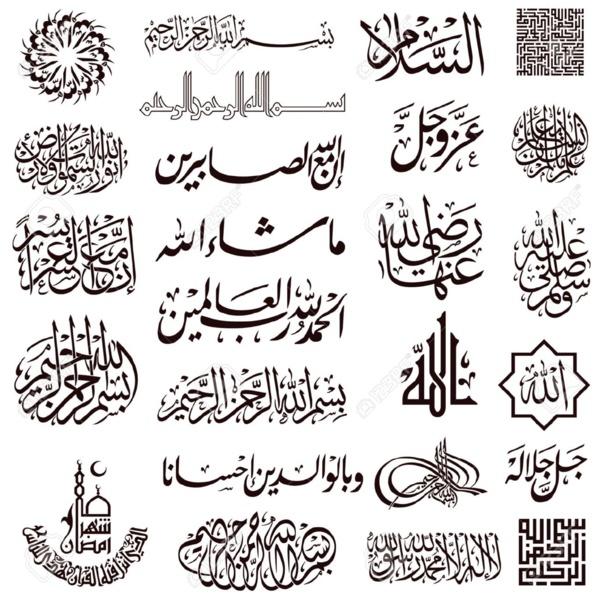 بسم الله الرحمن الرحيم
السلام
بسم الله الرحمن الرحيم
عز وجل
إن الله مع الصابرين
الله نور السموات والأرض
ما شاء الله
رضي الله عنها
صلى الله عليه وسلم
إن مع العسر يسرا
الحمد لله رب العالمين
بسم الله الرحمن الرحيم
الله
بسم الله الرحمن الرحيم
وبالوالدين احسانا
بسم الله الرحمن الرحيم
جل جلاله
شهر رمضان
بسم الله الرحمن الرحيم
لا إله إلا الله محمد رسول الله
بسم الله الرحمن الرحيم